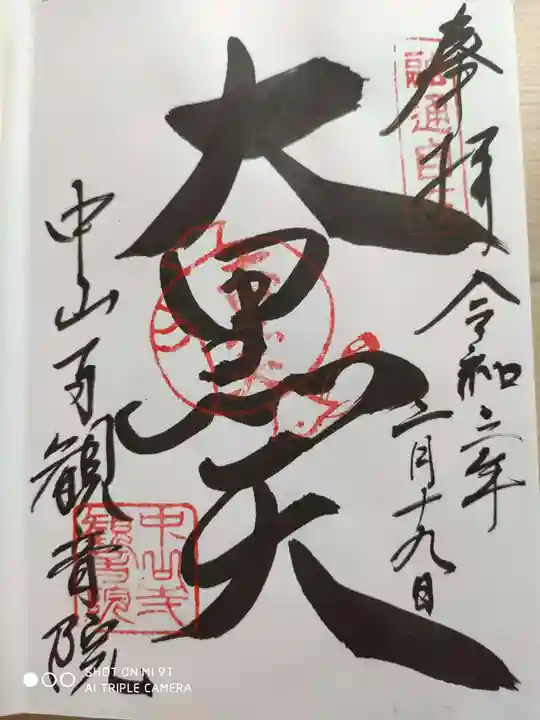 奉拝
融通自
令和三年
二月十九日
大黒天
中山寺観音院
中山寺
観音院
SHOT ON MI 9T
AI TRIPLE CAMERA